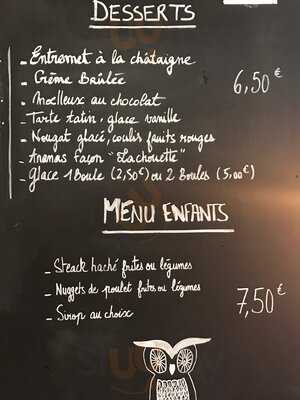 DESSERTS
- Entremet à la châtaigne
- Crème Brûlée
6,50€
- Moelleux au chocolat
- Tarte tatin, glace vanille
- Nougat glacé, coulis fruits rouges
- Ananas façon "Lachouette"
- Glace 1 Boule (2,50€) ou 2 Boules (5,00€)
MENU ENFANTS
- Steack haché frites ou légumes
- Nuggets de poulet frites ou légumes
- Sirop au choix
7,50€